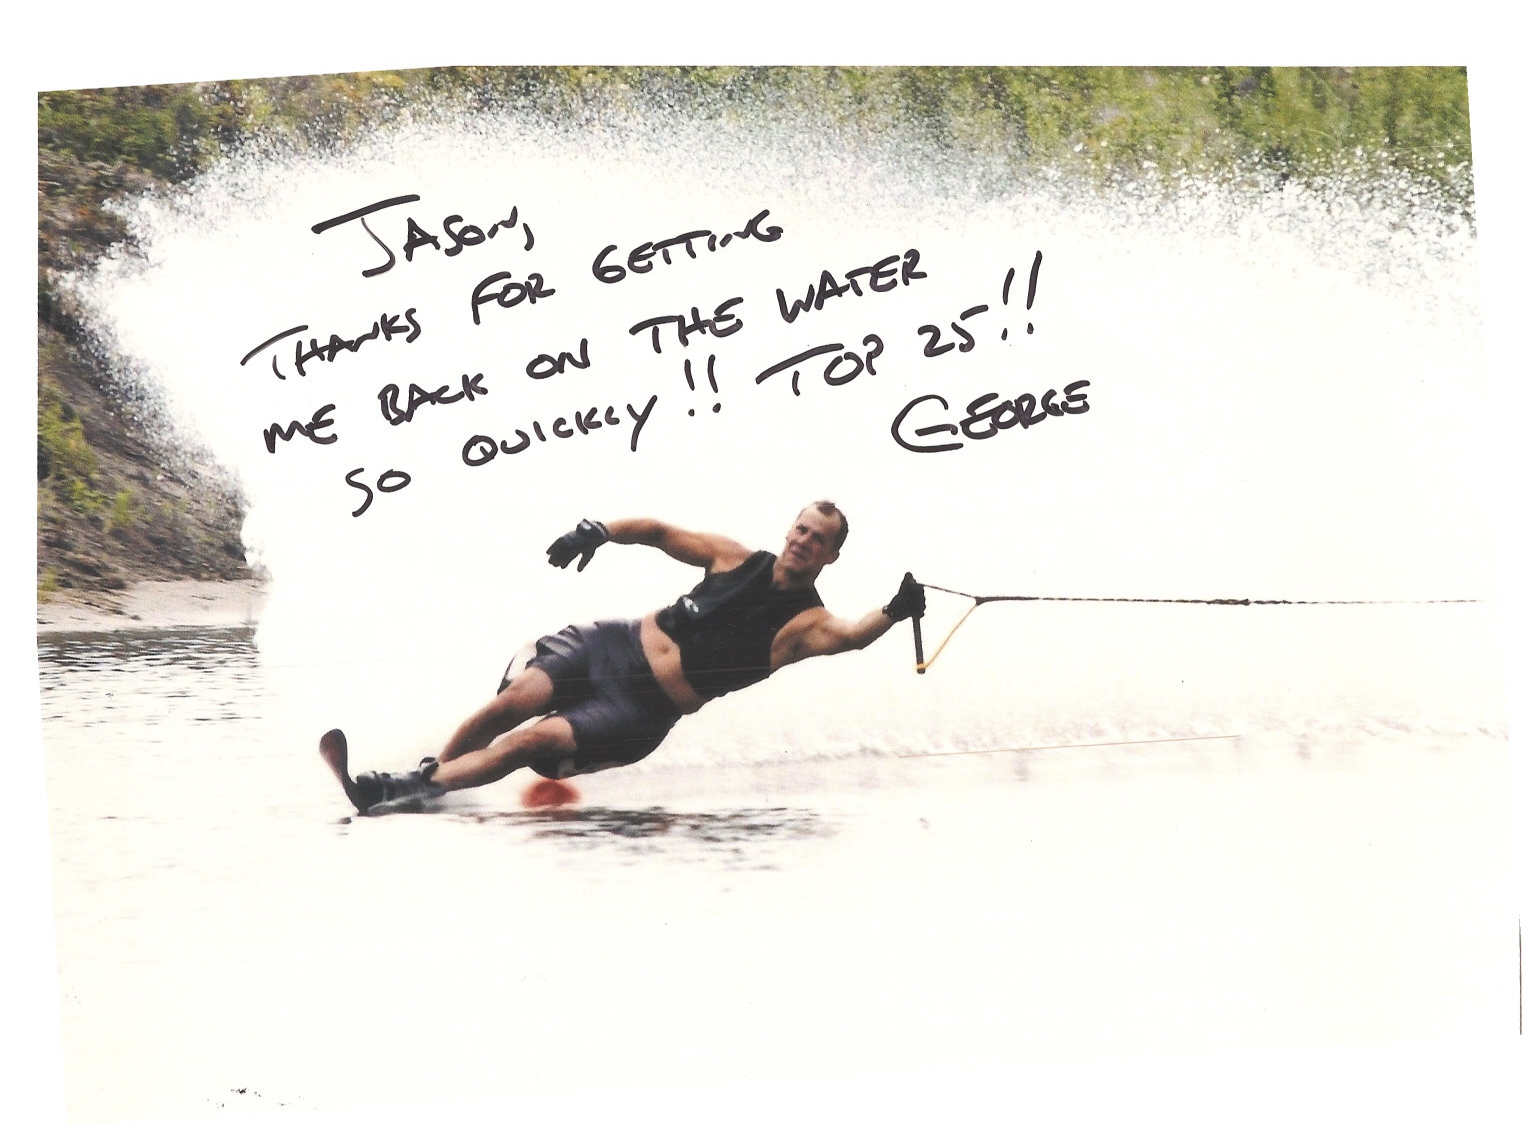 JASON,
THANKS FOR GETTING
ME BACK ON THE WATER
SO QUICKLY!! TOP 25!!
GEORGE